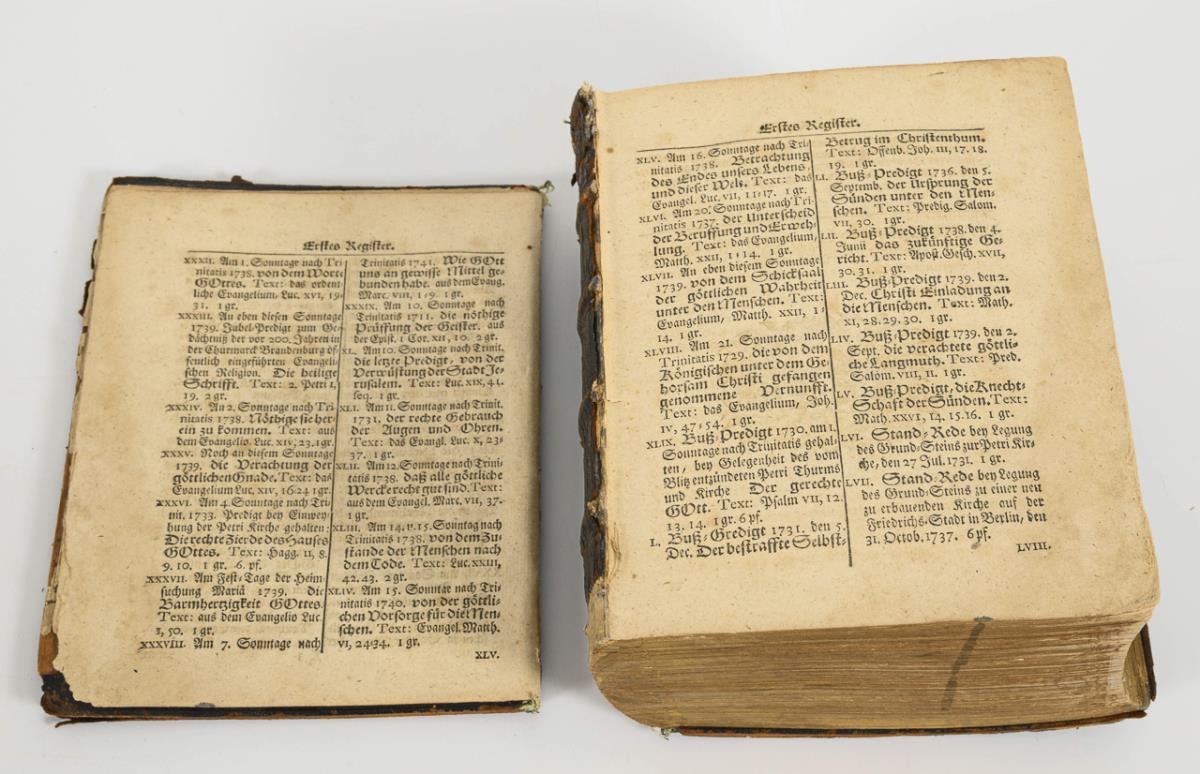 Erstes Register.
XXXII. Am 1. Sonntage nach Tri-
nitatis 1738. von dem Worte
GOttes. Text: das ordent-
liche Evangelium, Luc. XVI, 19-
31. 1 gr.
XXXIII. An eben diesen Sonntage
1739. Jubel-Predigt zum Ge-
dächtniß der vor 200. Jahren in
der Churmarck Brandenburg öf-
fentlich eingeführten Evangeli-
schen Religion. Die heilige
Schrifft. Text: 2. Petri I,
19. 2 gr.
XXXIV. Am 2. Sonntage nach Tri-
nitatis 1738. Nöthige sie her-
ein zu kommen. Text: aus
dem Evangelio Luc. XIV, 23. 1 gr.
XXXV. Noch an diesem Sonntage
1739. die Verachtung der
göttlichen Gnade. Text: das
Evangelium Luc. XIV, 16-24 1 gr.
XXXVI. Am 4. Sonntage nach Tri-
nit. 1733. Predigt bey Einwey-
hung der Petri Kirche gehalten:
Die rechte Zierde des Hauses
GOttes. Text: Hagg. II, 8.
9. 10. 1 gr. 6. pf.
XXXVII. Am Fest-Tage der Heim-
suchung Mariä 1739. die
Barmhertzigkeit GOttes.
Text: aus dem Evangelio Luc.
I, 50. 1 gr.
XXXVIII. Am 7. Sonntage nach
Trinitatis 1741. Wie GOtt
uns an gewisse Mittel ge-
bunden habe. aus dem Evang.
Marc. VIII, 1-9. 1 gr.
XXXIX. Am 10. Sonntage nach
Trinitatis 1711. die nöthige
Prüfung der Geister. aus
der Epist. 1 Cor. XII, 10. 2 gr.
XL. Am 10. Sonntage nach Trinit.
die letzte Predigt, von der
Verwüstung der Stadt Je-
rusalem. Text: Luc. XIX, 41.
seq. 1 gr.
XLI. Am 11. Sonntage nach Trinit.
1731. der rechte Gebrauch
der Augen und Ohren.
Text: das Evangl. Luc. X, 23-
37. 1 gr.
XLII. Am 12. Sonntage nach Trini-
tatis 1738. daß alle göttliche
Wercke recht gut sind. Text:
aus dem Evangel. Marc. VII, 37.
1 gr.
XLIII. Am 14. u. 15. Sonntag nach
Trinitatis 1738. von dem Zu-
stande der Menschen nach
dem Tode. Text: Luc. XXIII,
42. 43. 2 gr.
XLIV. Am 15. Sonntage nach Tri-
nitatis 1740. von der göttli-
chen Vorsorge für die Men-
schen. Text: Evangel. Matth.
VI, 24-34. 1 gr.
XLV.
Erstes Register.
XLV. Am 16. Sonntage nach Tri-
nitatis 1738. Betrachtung
des Endes unsers Lebens,
und dieser Welt. Text: das
Evangel. Luc. VII, 11-17. 1 gr.
XLVI. Am 20. Sonntage nach Tri-
nitatis 1737. der Unterscheid
der Beruffung und Erweh-
lung. Text: das Evangelium,
Matth. XXII, 1-14. 1 gr.
XLVII. An eben diesem Sonntage
1739. von dem Schicksaal
der göttlichen Wahrheit
unter den Menschen. Text:
Evangelium, Matth. XXII, 1-
14. 1 gr.
XLVIII. Am 21. Sonntage nach
Trinitatis 1729. die von dem
Königischen unter dem Ge-
horsam Christi gefangen
genommene Vernunfft.
Text: das Evangelium, Joh.
IV, 47-54. 1 gr.
XLIX. Buß-Predigt 1730. am 1.
Sonntage nach Trinitatis gehal-
ten, bey Gelegenheit des vom
Blitz entzündeten Petri Thurms
und Kirche Der gerechte
GOtt. Text: Psalm VII, 12.
13. 14. 1 gr. 6 pf.
L. Buß-Gredigt 1731. den 5.
Dec. Der bestraffte Selbst-
Betrug im Christenthum.
Text: Offenb. Joh. III, 17. 18.
19. 1 gr.
LI. Buß-Predigt 1736. den 5.
Septemb. der Ursprung der
Sünden unter den Men-
schen. Text: Predig. Salom.
VII, 30. 1 gr.
LII. Buß-Predigt 1738. den 4.
Junii das zukünftige Ge-
richt. Text: Apost. Gesch. XVII,
30. 31. 1 gr.
LIII. Buß-Predigt 1739. den 2.
Dec. Christi Einladung an
die Menschen. Text: Math.
XI, 28. 29. 30. 1 gr.
LIV. Buß-Predigt 1739. den 2.
Sept. die verachtete göttli-
che Langmuth. Text: Pred.
Salom. VIII, 11. 1 gr.
LV. Buß-Predigt, die Knecht-
Schaft der Sünden. Text:
Math. XXVI, 14. 15. 16. 1 gr.
LVI. Stand-Rede bey Legung
des Grund-Steins zur Petri Kir-
che, den 27 Jul. 1731. 1 gr.
LVII. Stand-Rede bey Legung
des Grund-Steins zu einer neu
zu erbauenden Kirche auf der
Friedrichs-Stadt in Berlin, den
31. Octob. 1737. 6 pf.
LVIII.